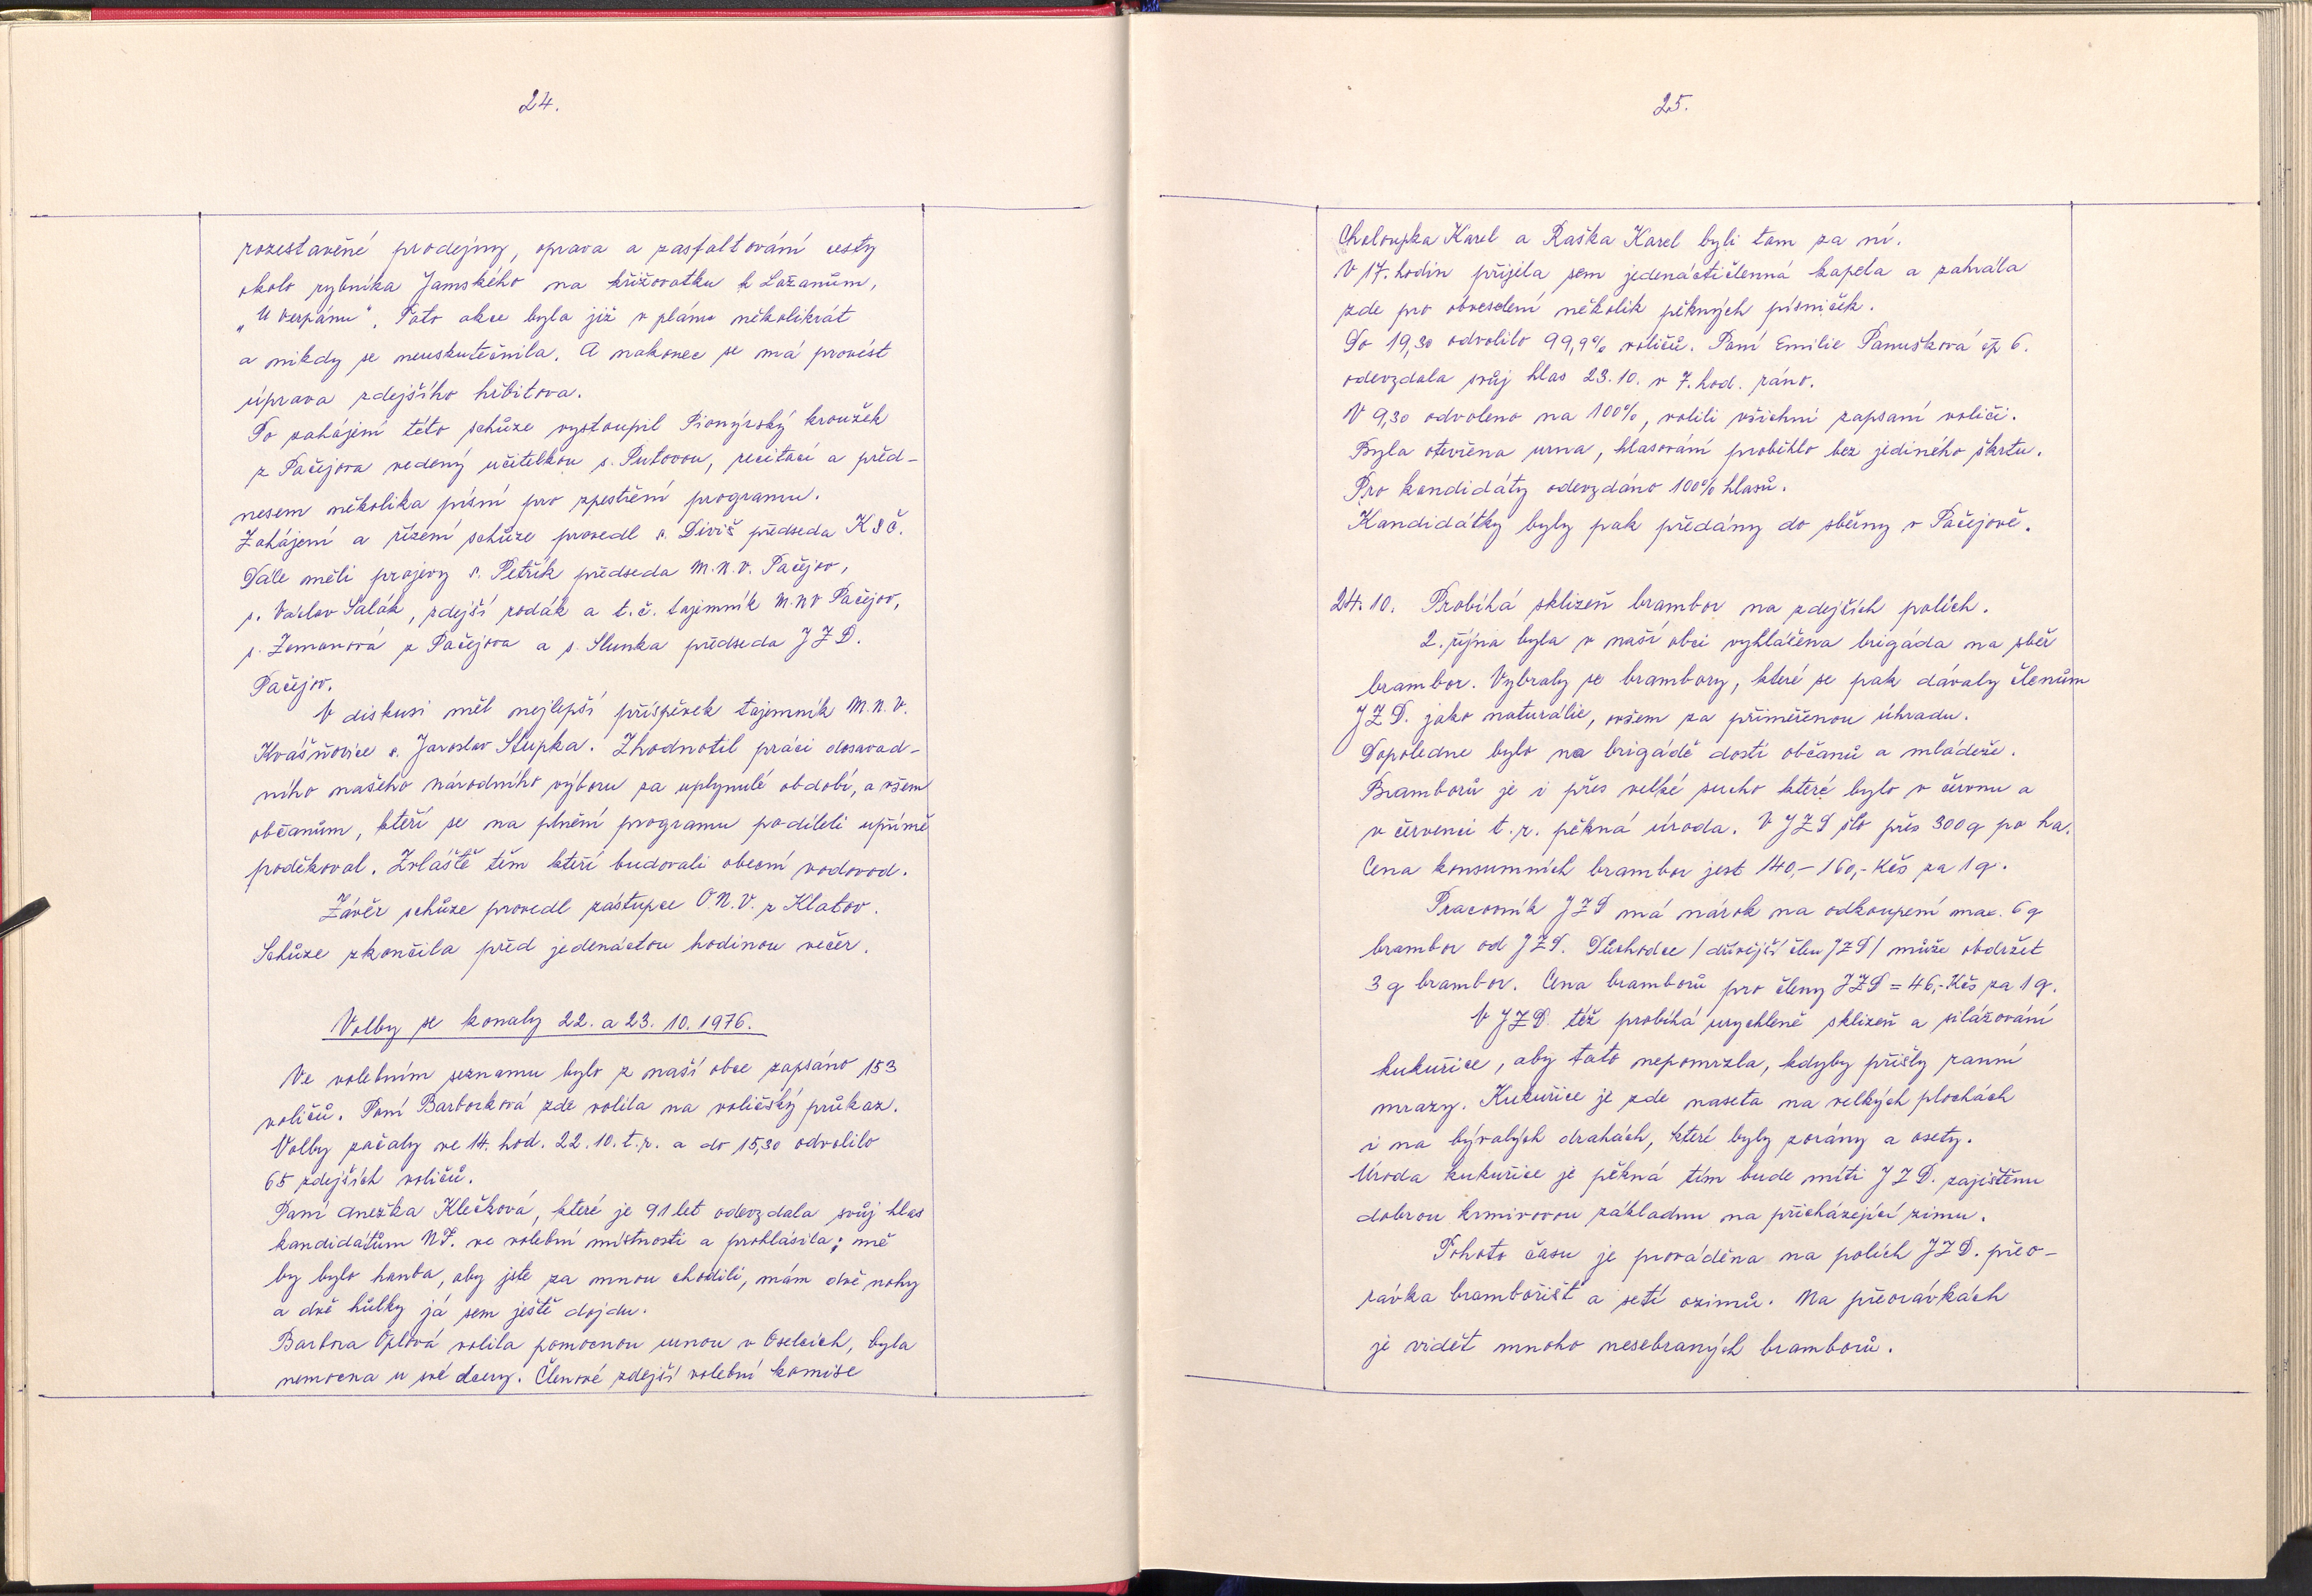 24.
rozestavěné prodejny, oprava a zasfaltování cesty
okolo rybníka Jamského na křižovatku k Lažanům,
„U Verpánu". Tato akce byla již v plánu několikrát
a nikdy se neuskutečnila. A nakonec se má provést
úprava zdejšího hřbitova.
Po zahájení této schůze vystoupil Pionýrský kroužek
z Pačejova vedený učitelkou s. Putovou, recitací a před-
nesem několika písní pro zpestření programu.
Zahájení a řízení schůze provedl s. Diviš předseda KSČ.
Dále měli projevy s. Petřík předseda M.N.V. Pačejov,
s. Václav Salák, zdejší rodák a t.č. tajemník M.NV Pačejov,
s. Zemanová z Pačejova a s. Slunka předseda JZD.
Pačejov.
V diskusi měl nejlepší příspěvek tajemník M.N.V.
Kvášňovice s. Jaroslav Stupka. Zhodnotil práci dosavad-
ního našeho národního výboru za uplynulé období, a všem
občanům, kteří se na plnění programu podíleli upřímě
poděkoval. Zvláště těm kteří budovali obecní vodovod.
Závěr schůze provedl zástupce O.N.V. z Klatov.
Schůze zkončila před jedenáctou hodinou večer.
Volby se konaly 22. a 23. 10. 1976.
Ve volebním seznamu bylo z naší obce zapsáno 153
voličů. Paní Barborková zde volila na voličský průkaz.
Volby začaly ve 14. hod. 22.10. t.r. a do 15,30 odvolilo
65 zdejších voličů.
Paní Anežka Klečková, které je 91 let odevzdala svůj hlas
kandidátům NF. ve volební místnosti a prohlásila; mě
by bylo hanba, aby jste za mnou chodili, mám dvě nohy
a dvě hůlky já sem ještě dojdu.
Barbora Oplová volila pomocnou urnou v Oselcích, byla
nemocna u své dcery. Členové zdejší volební komise
25.
Chaloupka Karel a Raška Karel byli tam za ní.
V 17. hodin přijela sem jedenáctičlenná kapela a zahrála
zde pro obveselení několik pěkných písniček.
Do 19,30 odvolilo 99,9% voličů. Paní Emilie Panušková čp 6.
odevzdala svůj hlas 23.10. v 7. hod. ráno.
V 9,30 odvoleno na 100%, volili všichni zapsaní voliči.
Byla otevřena urna, hlasování proběhlo bez jediného škrtu.
Pro kandidáty odevzdáno 100% hlasů.
Kandidátky byly pak předány do sběrny v Pačejově.
24.10. Probíhá sklizeň brambor na zdejších polích.
2. října byla v naší obci vyhlášena brigáda na sběr
brambor. Vybraly se brambory, které se pak dávaly členům
JZD. jako naturálie, ovšem za přiměřenou úhradu.
Dopoledne bylo na brigádě dosti občanů a mládeže.
Bramborů je i přes velké sucho které bylo v červnu a
v červenci t.r. pěkná úroda. V JZD šlo přes 300 q po ha.
Cena konsumních brambor jest 140,- 160,- Kčs za 1 q.
Pracovník JZD má nárok na odkoupení max. 6 q
brambor od JZD. Důchodce /dřívější člen JZD/ může obdržet
3 q brambor. Cena bramborů pro členy JZD = 46,- Kčs za 1 q.
V JZD. též probíhá urychleně sklizeň a silážování
kukuřice, aby tato nepomrzla, kdyby přišly ranní
mrazy. Kukuřice je zde naseta na velkých plochách
i na bývalých drahách, které byly zorány a osety.
Úroda kukuřice je pěkná tím bude míti JZD. zajištěnu
dobrou krmivovou základnu na přicházející zimu.
Tohoto času je prováděna na polích JZD. přeo-
rávka bramborišť a setí ozimů. Na přeorávkách
je vidět mnoho nesebraných bramborů.